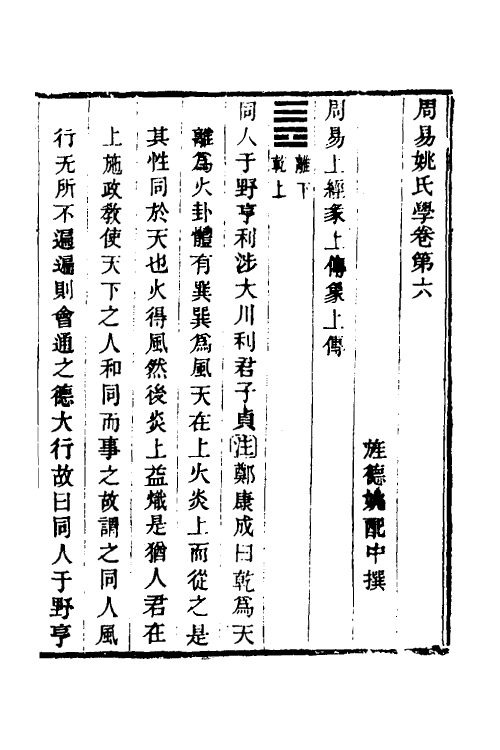 周易姚氏學卷第六
旌德姚配中撰
周易上經彖上傳象上傳
離下
乾上
同人于野亨利涉大川利君子貞注鄭康成曰乾爲天
離爲火卦體有巽巽爲風天在上火炎上而從之是
其性同於天也火得風然後炎上益熾是猶人君在
上施政教使天下之人和同而事之故謂之同人風
行无所不遍遍則會通之德大行故曰同人于野亨